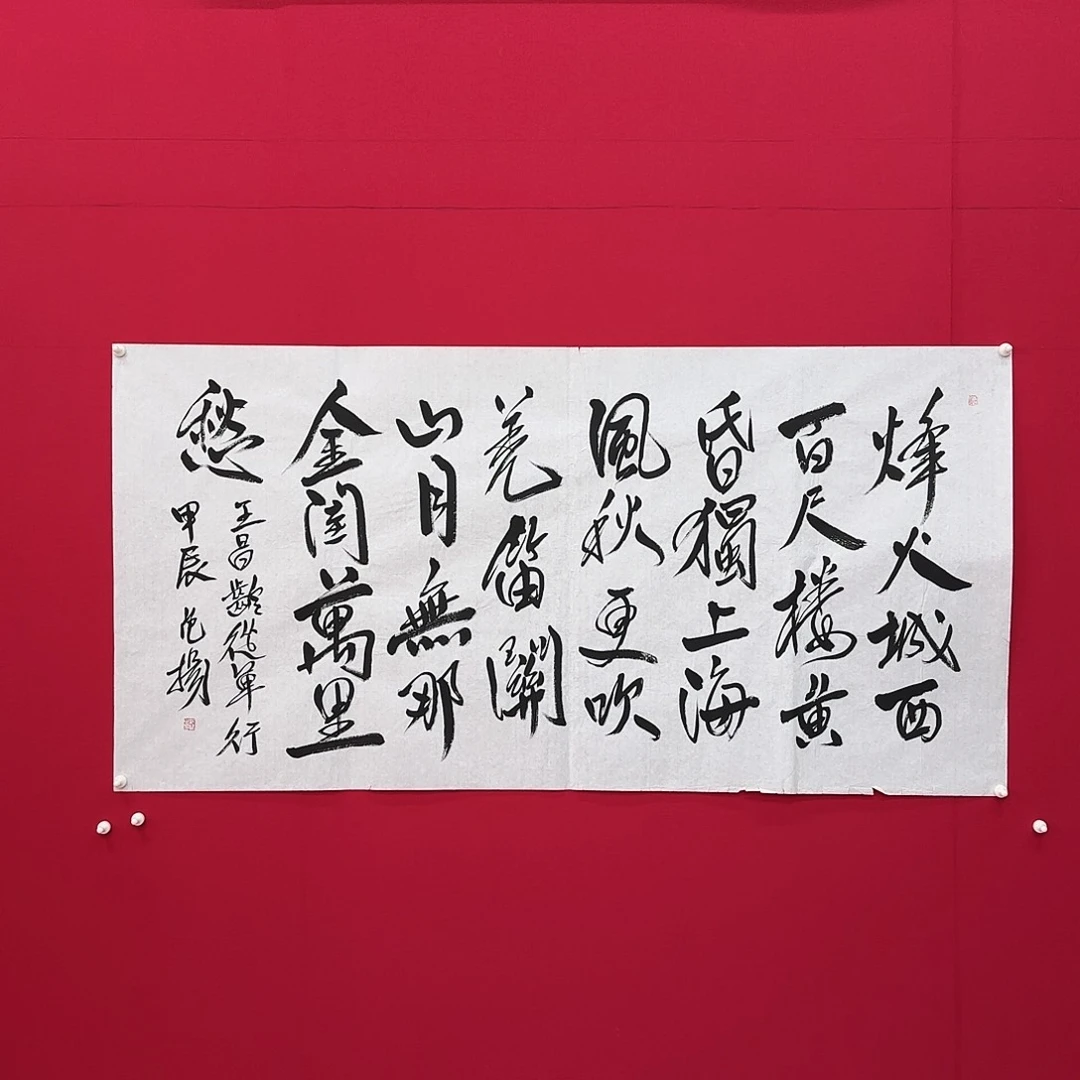 烽火城西
百尺楼黄
昏獨上海
風秋更吹
羌笛關
山月無那
金閨萬里
愁
王昌齡從軍行
甲辰 范揚